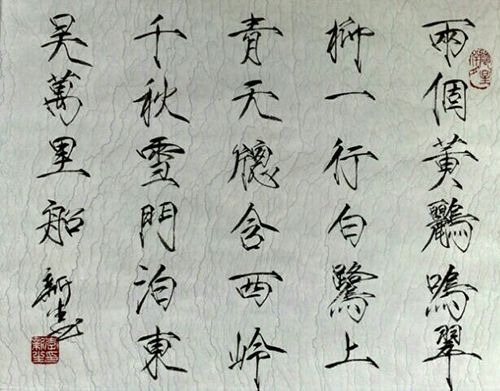 兩個黃鸝鳴翠
柳一行白鷺上
青天窓含西岭
千秋雪門泊東
吴萬里船 新生书